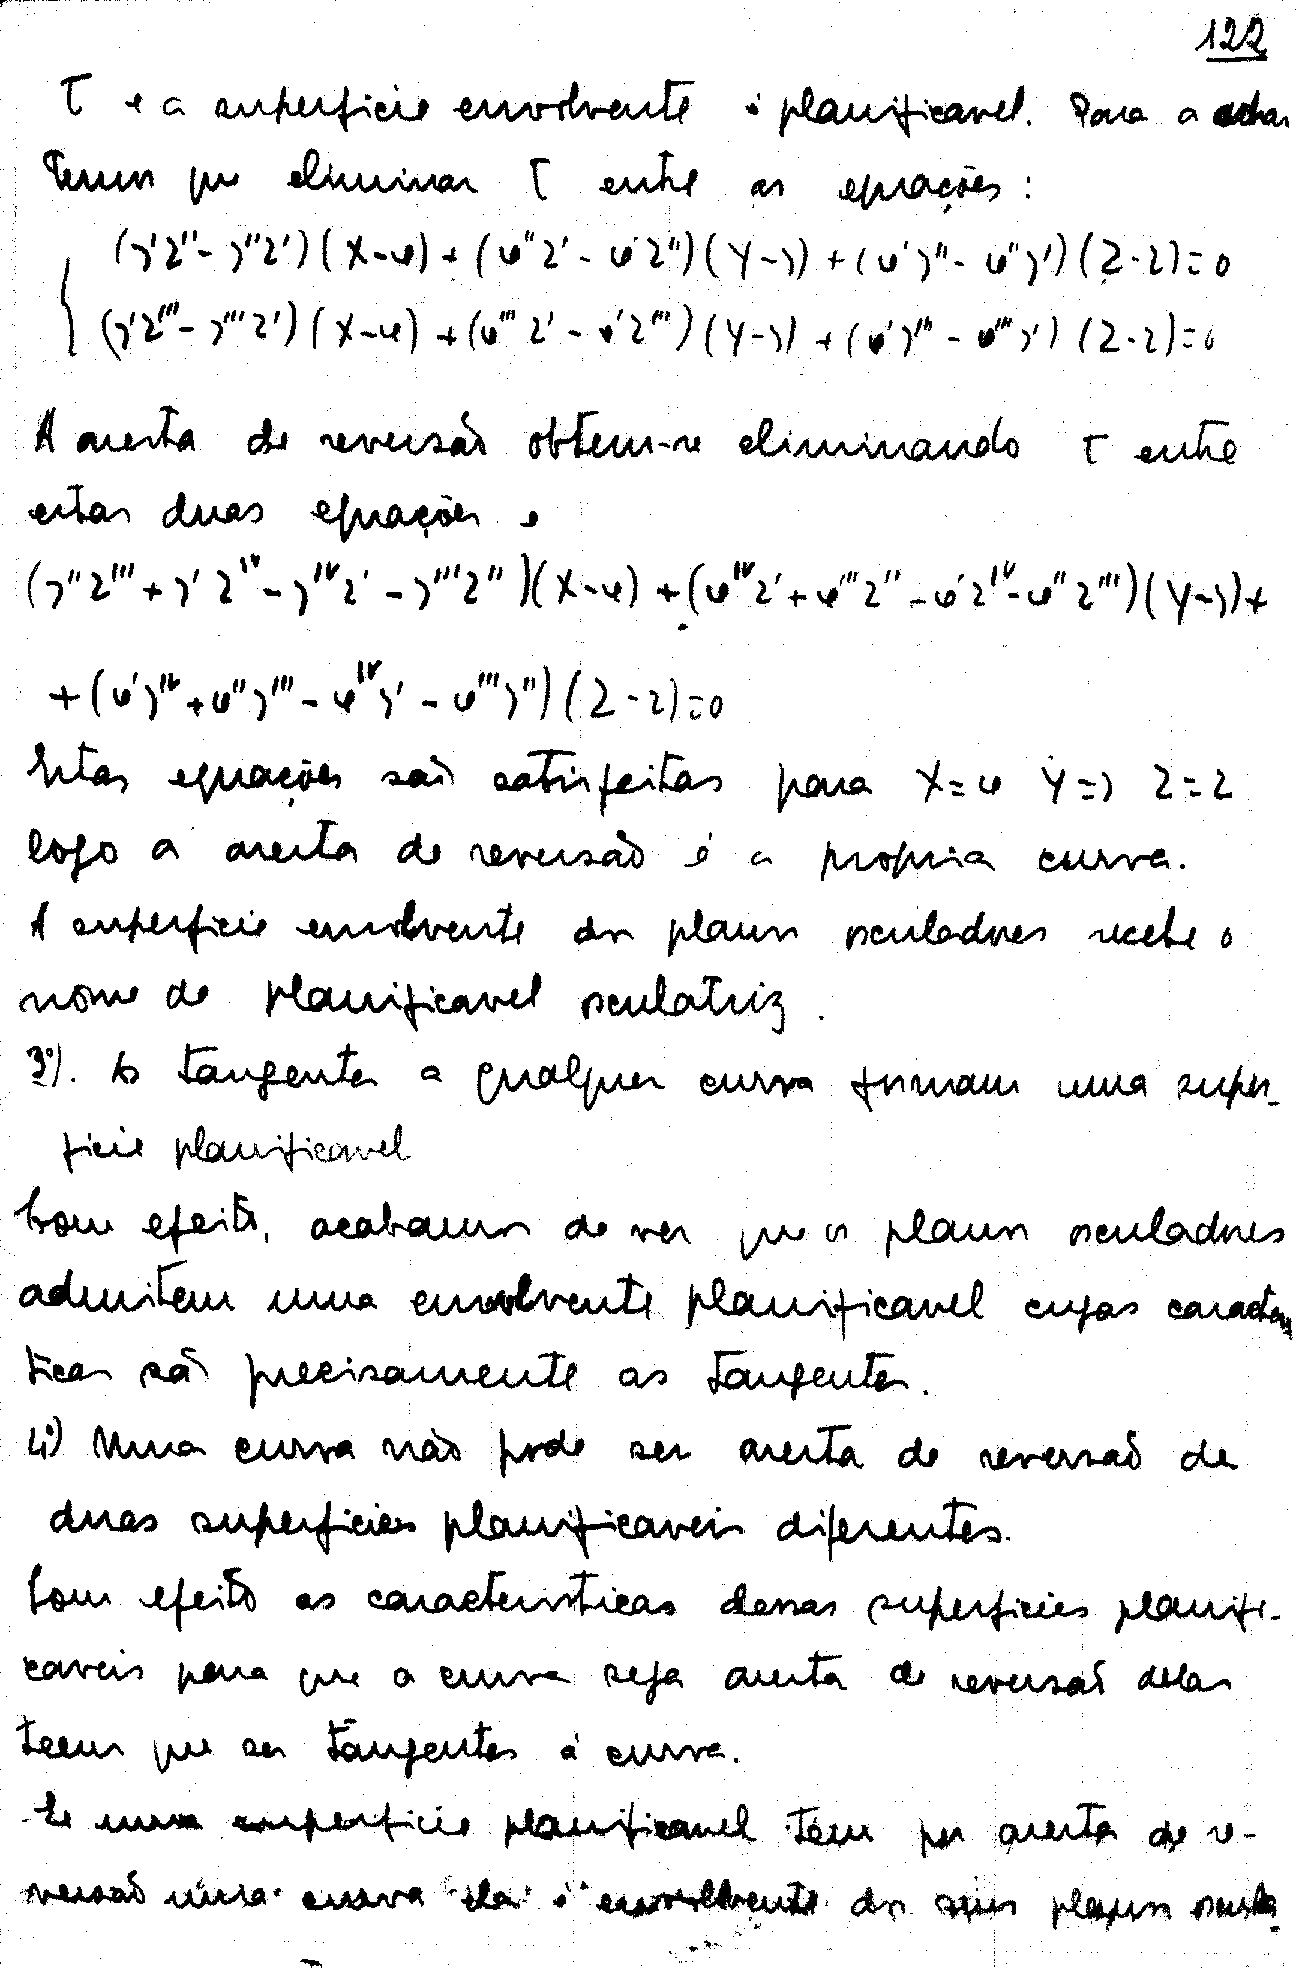 122
τ e a superficie envolvente é planificavel. Para a achar
temos que eliminar τ entre as equações:
(y'z''- y''z')(X-x) + (x''z' - x'z'')(Y-y) + (x'y'' - x''y')(Z-z)=0
(y'z'''- y'''z')(X-x) + (x'''z' - x'z''')(Y-y) + (x'y''' - x'''y')(Z-z)=0
A aresta de reversão obtem-se eliminando τ entre
estas duas equações e
(y''z''' + y'z^IV - y^IV z' - y'''z'')(X-x) + (x^IV z' + x'''z'' - x'z^IV - x''z''')(Y-y)+
+ (x'y^IV + x''y''' - x^IV y' - x'''y'')(Z-z)=0
Estas equações são satisfeitas para X=x Y=y Z=z
logo a aresta de reversão é a propria curva.
A superficie envolvente dos planos osculadores recebe o
nome de planificavel osculatriz.
3º). As tangentes a qualquer curva formam uma super-
ficie planificavel
Com efeito, acabamos de ver que os planos osculadores
admitem uma envolvente planificavel cujas caracterís
ticas são precisamente as tangentes.
4º) Uma curva não pode ser aresta de reversão de
duas superficies planificaveis diferentes.
Com efeito as caracteristicas dessas superficies planifi-
caveis para que a curva seja aresta de reversão delas
teem que ser tangentes á curva.
Se uma superficie planificavel tem por aresta de re-
versão uma curva ela é envolvente dos seus planos oscula